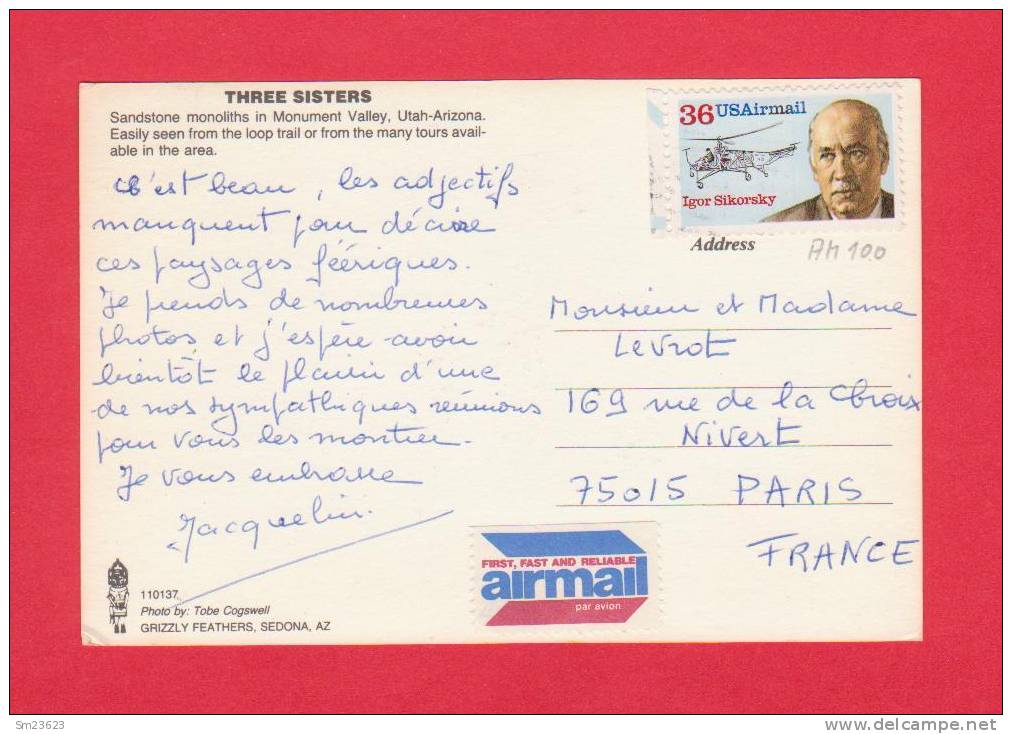 THREE SISTERS
Sandstone monoliths in Monument Valley, Utah-Arizona.
Easily seen from the loop trail or from the many tours avail-
able in the area.
C'est beau, les adjectifs
manquent pour décrire
ces paysages féériques.
Je prends de nombreuses
photos et j'espère avoir
bientôt le plaisir d'une
de nos sympathiques réunions
pour vous les montrer.
Je vous embrasse
Jacqueline
110137
Photo by: Tobe Cogswell
GRIZZLY FEATHERS, SEDONA, AZ
36 USAirmail
Igor Sikorsky
Address
AM 100
Monsieur et Madame
Levrot
169 rue de la Croix
Nivert
75015 PARIS
FRANCE
FIRST, FAST AND RELIABLE
airmail
par avion
Sm23623
www.delcampe.net